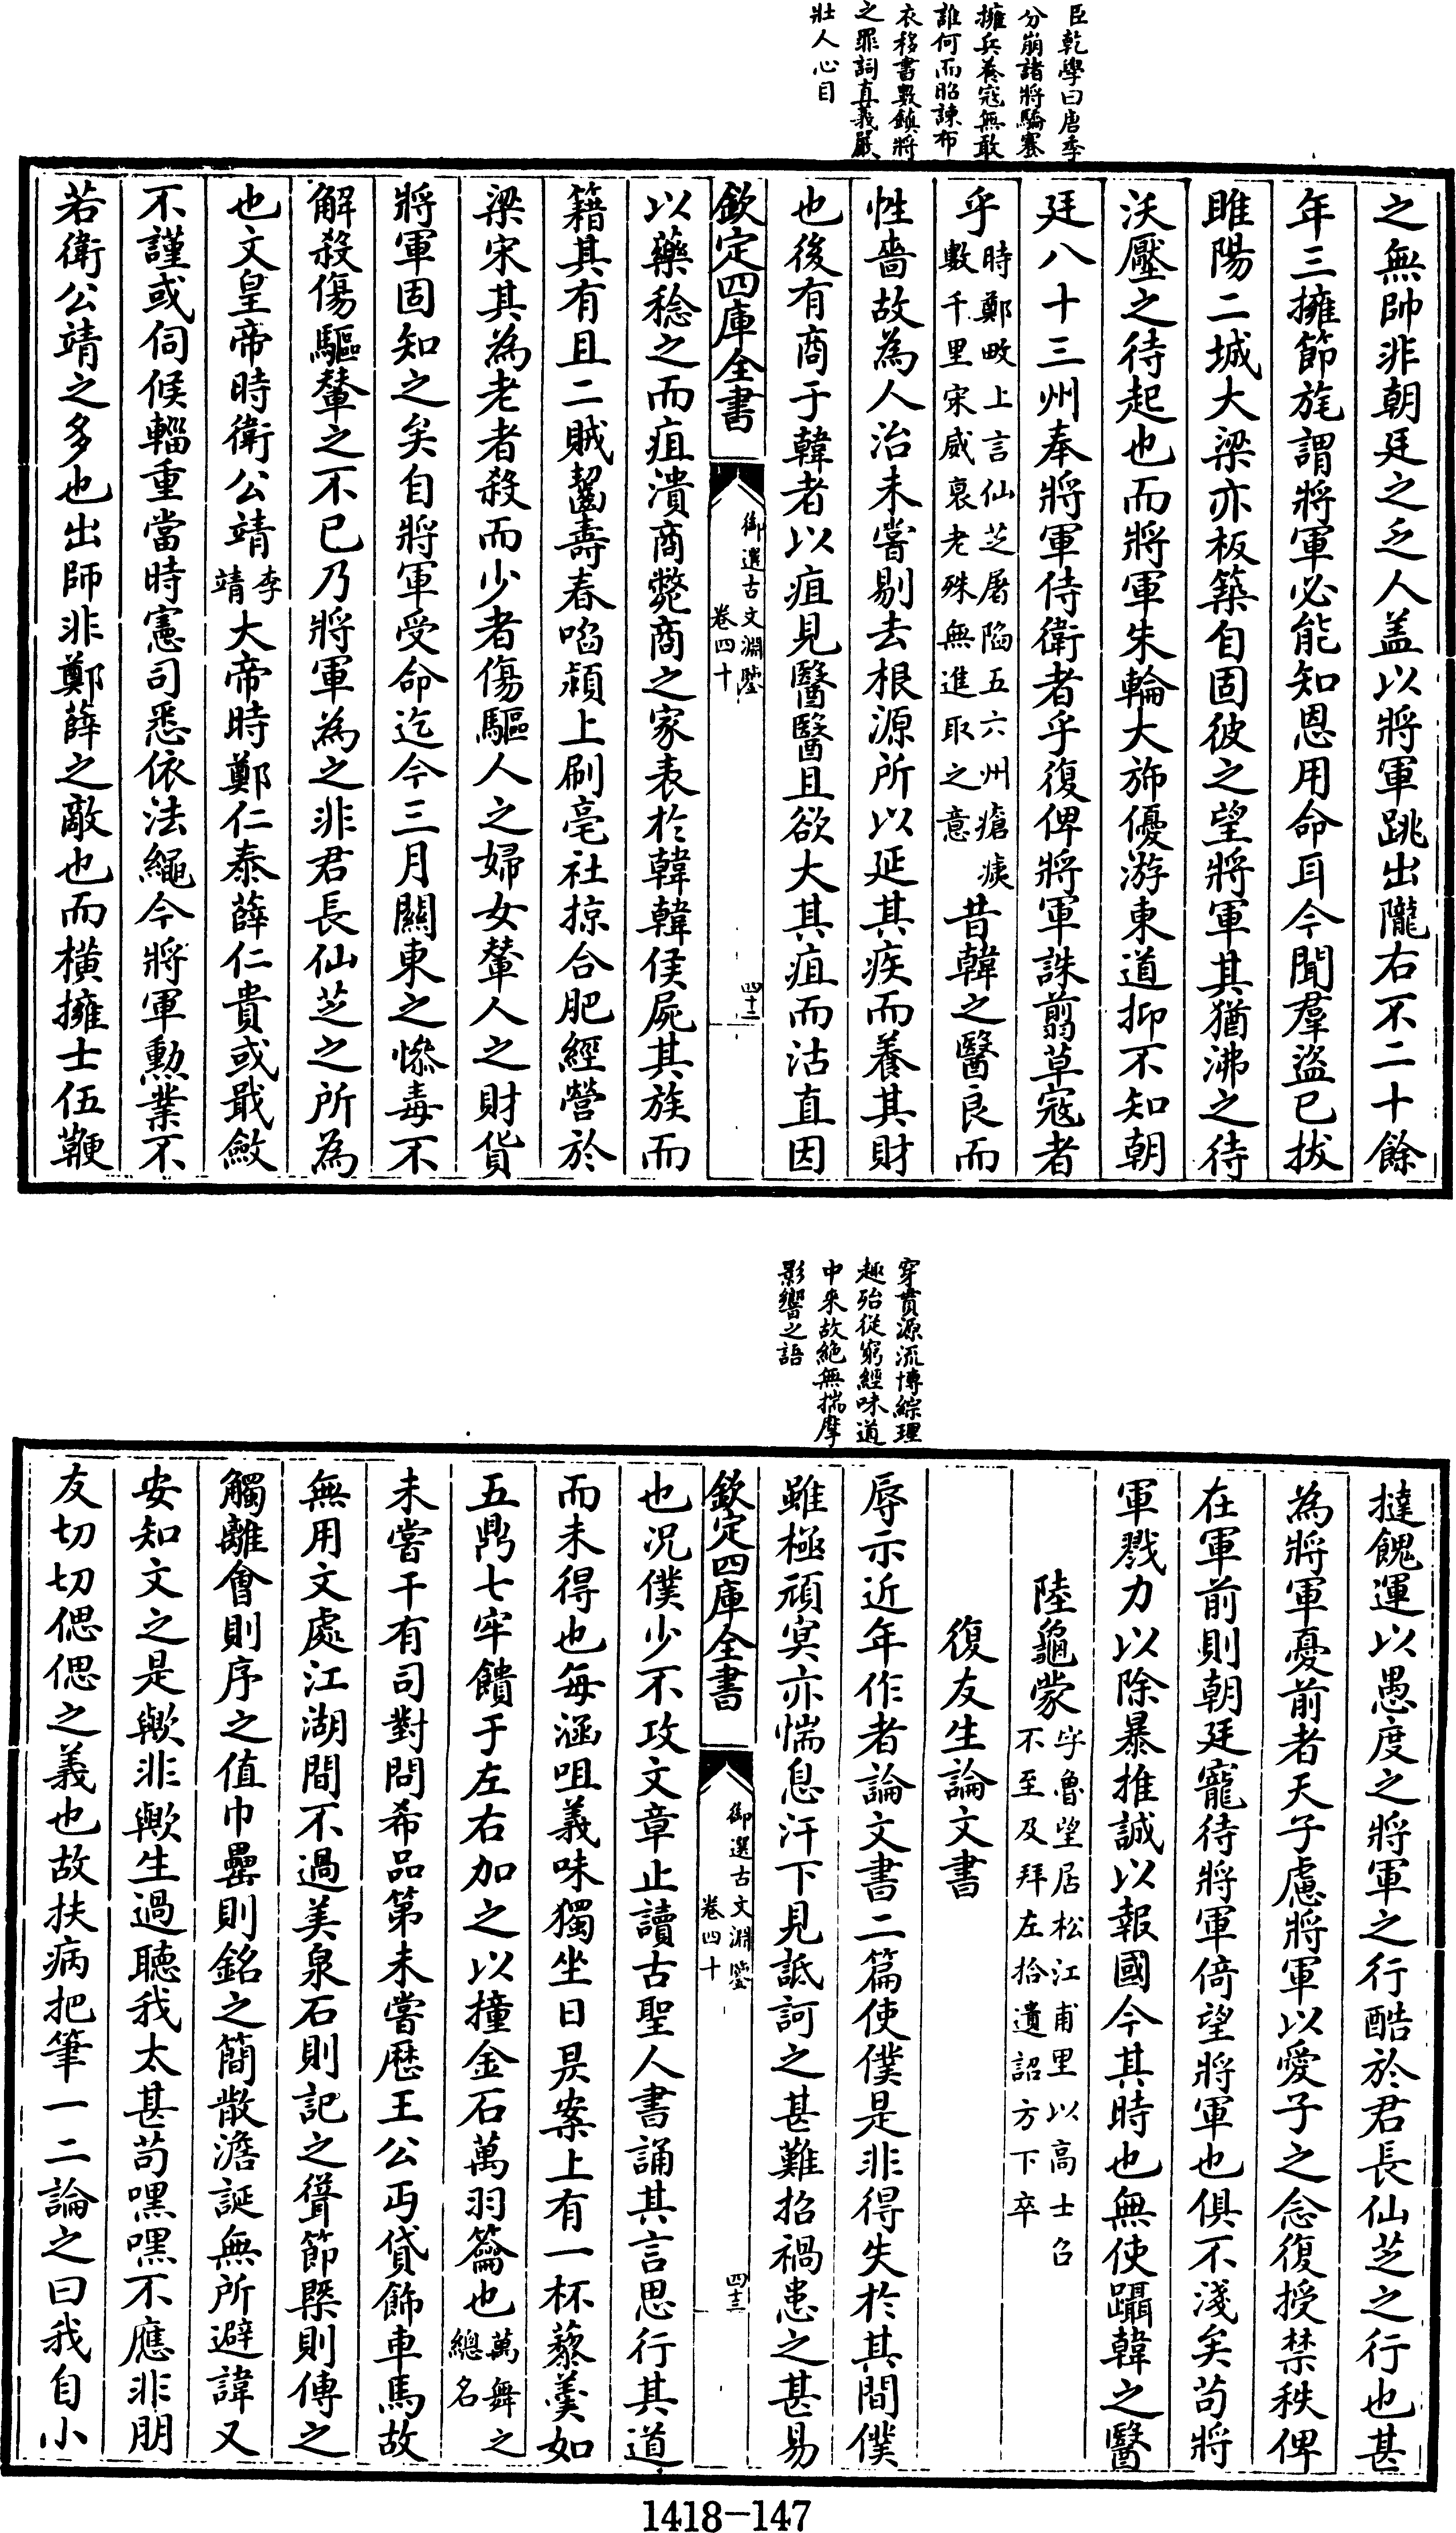 臣乾學曰唐季
分崩諸將驕蹇
擁兵養寇無敢
誰何而昭諫布
衣移書數鎮將
之罪詞直義嚴
壯人心目
之無帥非朝廷之乏人盖以將軍跳出隴右不二十餘
年三擁節旄謂將軍必能知恩用命耳今聞羣盜已拔
睢陽二城大梁亦板築自固彼之望將軍其猶沸之待
沃壓之待起也而將軍朱輪大斾優游東道抑不知朝
廷八十三州奉將軍侍衛者乎復俾將軍誅翦草寇者
乎時鄭畋上言仙芝屠陷五六州瘡痍數千里宋威衰老殊無進取之意昔韓之醫良而
性嗇故為人治未嘗剔去根源所以延其疾而養其財
也後有商于韓者以疽見醫醫且欲大其疽而沽直因
欽定四庫全書
御選古文淵鑒
卷四十
四十二
以藥稔之而疽潰商斃商之家表於韓韓侯屍其族而
籍其有且二賊齧壽春啗潁上刷亳社掠合肥經營於
梁宋其為老者殺而少者傷驅人之婦女輦人之財貨
將軍固知之矣自將軍受命迄今三月關東之慘毒不
解殺傷驅輦之不已乃將軍為之非君長仙芝之所為
也文皇帝時衛公靖李靖大帝時鄭仁泰薛仁貴或戢斂
不謹或伺候輜重當時憲司悉依法繩今將軍勲業不
若衛公靖之多也出師非鄭薛之敵也而橫擁士伍鞭
穿貫源流博綜理
趣殆從窮經味道
中來故絕無揣摩
影響之語
撻餽運以愚度之將軍之行酷於君長仙芝之行也甚
為將軍憂前者天子慮將軍以愛子之念復授禁秩俾
在軍前則朝廷寵待將軍倚望將軍也俱不淺矣苟將
軍戮力以除暴推誠以報國今其時也無使躡韓之醫
陸龜蒙字魯望居松江甫里以高士召不至及拜左拾遺詔方下卒
復友生論文書
辱示近年作者論文書二篇使僕是非得失於其間僕
雖極頑冥亦惴息汗下見詆訶之甚難招禍患之甚易
欽定四庫全書
御選古文淵鑒
卷四十
四十三
也况僕少不攻文章止讀古聖人書誦其言思行其道
而未得也每涵咀義味獨坐日昃案上有一杯藜羹如
五鼎七牢饋于左右加之以撞金石萬羽籥也萬舞之總名
未嘗干有司對問希品第未嘗歷王公丐貸飾車馬故
無用文處江湖間不過美泉石則記之聳節槩則傳之
觸離會則序之值巾罍則銘之簡散澹誕無所避諱又
安知文之是歟非歟生過聽我太甚苟嘿嘿不應非朋
友切切偲偲之義也故扶病把筆一二論之曰我自小
1418-147